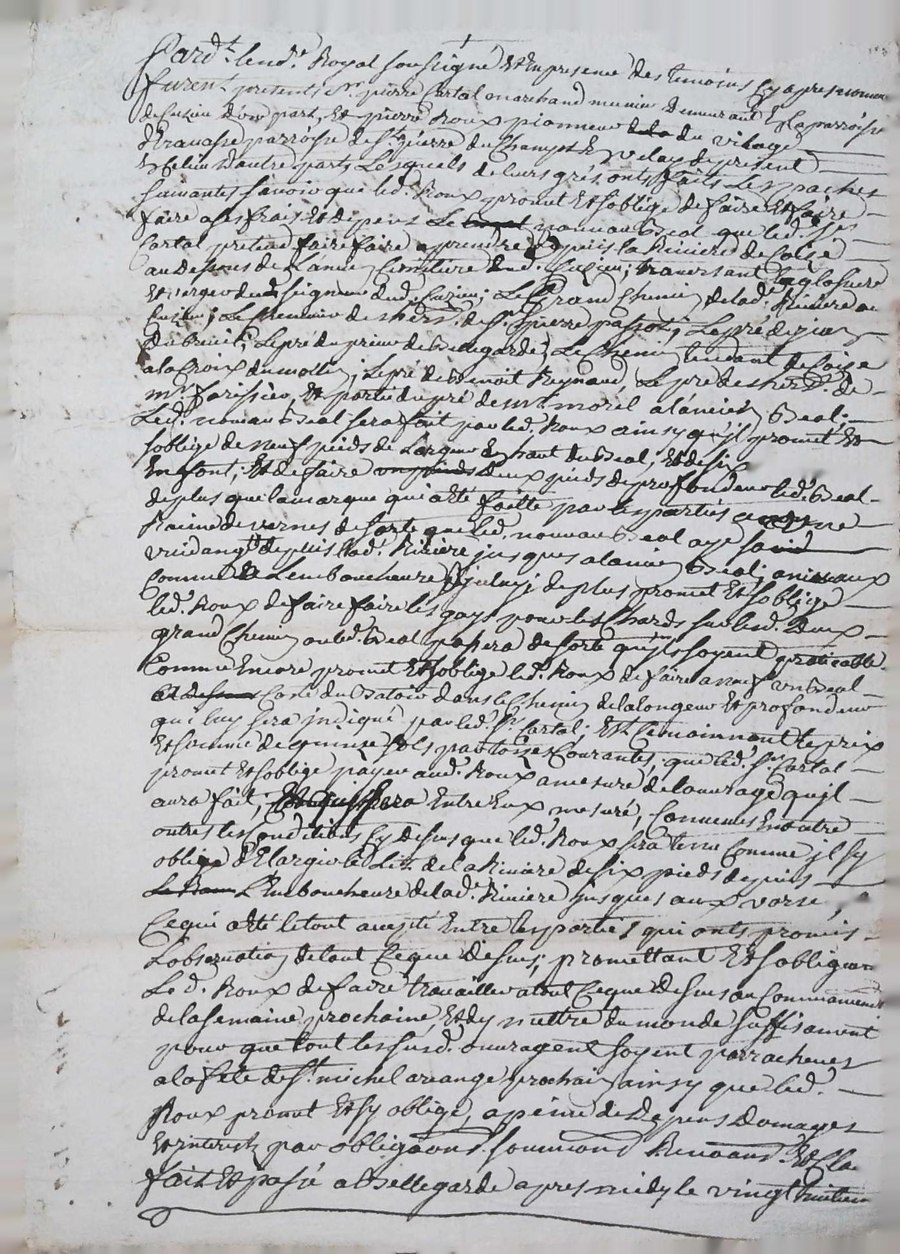 Pard.t le nd.e Royal soussigné Et En presence des temoins Cy apres nommes
furent presents S.r pierre Cartal marchand munier demeurant En la parroisse
de Cuzieu d'une part, Et pierre Roux pionneur du village
d'Etranche parroisse de S.t pierre du Champt En Velay de present
d'autre part, Lesquels de leurs gres onts faits Les paches
suivantes sçavoir que led. Roux promet Et soblige de faire Et faire
faire a ses frais Et depens Le nouveau Beal que led. S.r
Cartal pretend faire faire a prendre depuis la Riviere de Coise
au dessous de L'ancien Cimitiere dud. Cuzieu; traversant la closure
Et verger du seigneur dud. Cuzieu; Le Grand Chemin de lad. Riviere a
Cuzieu; Le de S.t pierre Le pré
du Breüil; Le pré du prieur de Bellegarde; Le Chemin tendant de Coise
a la Croix du mollin; Le pré de Benoit Reynaud, Le pré des de
m.e farissier, Et partie du pré de morel a l'ancien Beal;
Led. nouveau Beal sera fait par led. Roux ainsy qu'jl promet Et
soblige de neuf pieds de Largeur En haut du Beal, Et de six
En font; Et de faire deux pieds de profondeur led. Beal
de plus que la marque qui a eté faitte par les parties
Racine de vernes de sorte que led. nouveau Beal aye
depuis lad. Riviere jusques a l'ancien Beal;
Comme L'embouchure de plus promet Et soblige
led. Roux de faire faire les gays pour les Chards sur led. Deux
grand Chemin ou led. Beal passera de sorte qu'jls soyent praticable
Comme Encore promet Et soblige led. Roux de faire a neuf un Beal
Coste du Batoir dans le Chemin de la longeur Et profondeur
qui luy sera jndiqué par led. S.r Cartal; Et Cemoiennant le prix
Et somme de quinze sols par toise Courantes, que led. S.r Cartal
promet Et soblige payer aud. Roux a mesure de louvrage qu'jl
aura fait, Entre Eux mesuré, Convenus En outre
outres les Conditions Cy dessus que led. Roux sera tenu Comme jl sy
oblige d'Elargir le Lit de la Riviere de six pieds depuis
L'Embouchure de lad. Riviere jusques aux vorse,
Ce qui a eté le tout accepté Entre les parties qui onts promis
L'observation de tout Ceque dessus; promettant Et sobligeant
Led. Roux de faire travailler a tout Ceque dessus au Commancement
de la semaine prochaine, Et dy mettre du monde suffisament
pour que tout les susd. ouvragent soyent parracheves
a la féte de S.t michel arcange prochain ainsy que led.
Roux promet Et sy oblige, a peine de Depens Domages
Et interest par obligaons soumissions Renonons Et Cla.
fait Et passé a Bellegarde apres midy le vingt huitieme